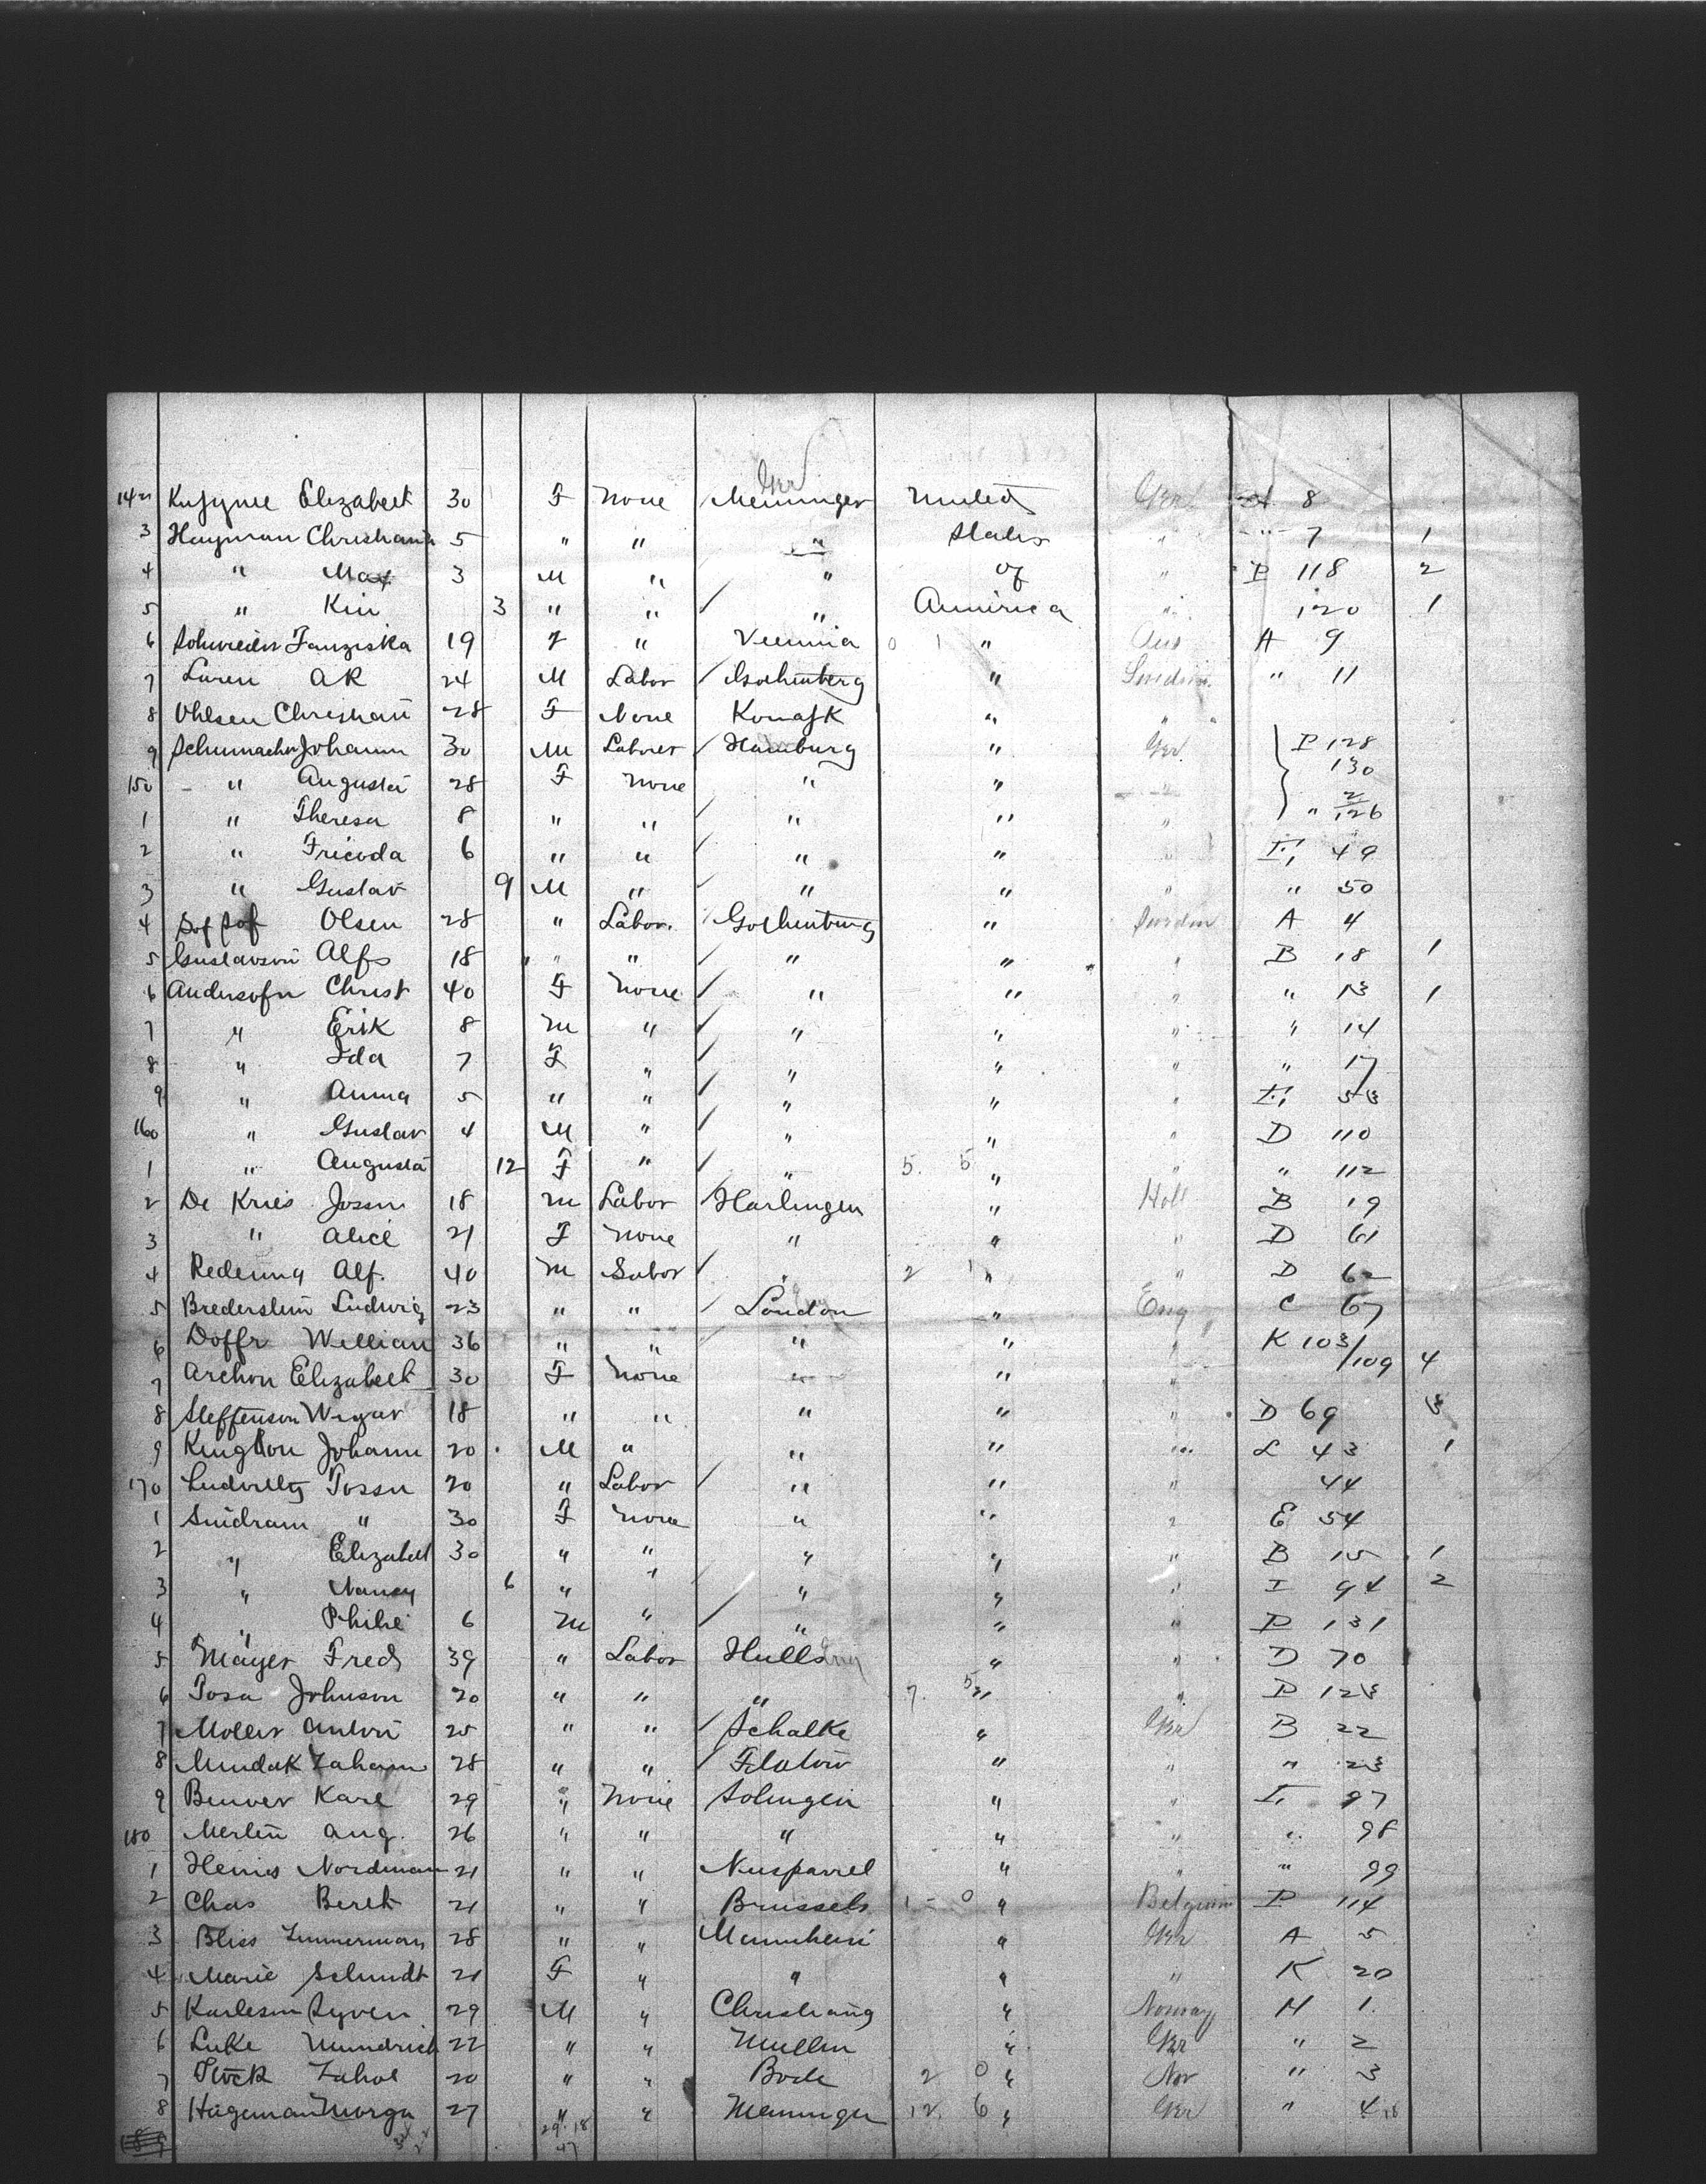 142 Elizabeth 30 F None Meininger Ger United Ger A 8
3 Hayman Christiann 5 " " " States " " 7 1
4 " Max 3 M " " of " P 118 2
5 " Kin 3 " " " America " 120 1
6 Franziska 19 F " Viennia 0 1 " Aus A 9
7 Luren AR 24 M Labor Gothenberg " Sweden " 11
8 Ohlsen Christian 28 F None " "
9 Schumacher Johann 30 M Laborer Hamburg " Ger P 128
150 " Augusta 28 F None " " " 130
1 " Theresa 8 " " " " " " 2/126
2 " Fricoda 6 " " " " " 49
3 " Gustav 9 M " " " " " 50
4 Sof Sof Olsen 28 " Labor Gothenburg " Sweden A 4
5 Gustavson Alf 18 " " " " " B 18 1
6 Andersofn Christ 40 F None " " " " 13 1
7 " Erik 8 M " " " " " 14
8 " Ida 7 F " " " " " 17
9 " Anna 5 " " " " " 53
160 " Gustav 4 M " " " " D 110
1 " Augusta 12 F " " 5. 5 " " " 112
2 De Kries Jossn 18 M Labor Harlingen " Holl B 19
3 " Alice 21 F None " " " D 61
4 Redeima Alf. 40 M Labor " 2 1 " " D 62
5 Brederstein Ludwig 23 " " London " Eng C 67
6 Doffr William 36 " " " " " K 103/
7 Archon Elizabeth 30 F None " " " /109 4
8 Steffenson 18 " " " " " D 69 3
9 Kington Johann 20 M " " " " L 43 1
170 Possn 20 " Labor " " " 44
1 Smidram " 30 F None " " " E 54
2 " Elizabet 30 " " " " " B 15 1
3 " Nancy 6 " " " " " I 94 2
4 " Philie 6 M " " " " P 131
5 Mayer Fred 39 " Labor Hull " " D 70
6 Posa Johnson 20 " " " 7. 5 " " P 123
7 Moller Anton 25 " " Schalke " Ger B 22
8 Mundak 28 " " Flatow " " " 23
9 Benver Karl 29 " None Solingen " " 97
180 Merlin Aug. 26 " " " " " " 98
1 Henis Nordman 21 " " " " " 99
2 Chas Beret 21 " " Brussels 1 - 0 " Belgium P 114
3 Bliss Zimmerman 28 " " Mannheim " Ger A 5
4 Marie Schmidt 21 F " " " " K 20
5 Karleson Syven 29 M " Christiang " Norway H 1
6 Luke Mundrich 22 " " Mullin " Ger " 2
7 20 " " Bode 2 0 " Nor " 3
8 Hageman 27 " " Menninger 12. 6 " Ger " 4
29. 18
47